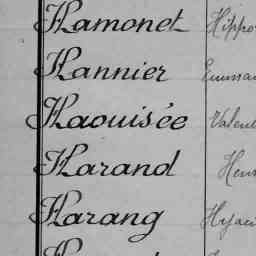 Hamonet Hippo
Hannier Emman
Haouisée Valent
Harand Henr
Harang Hyaci